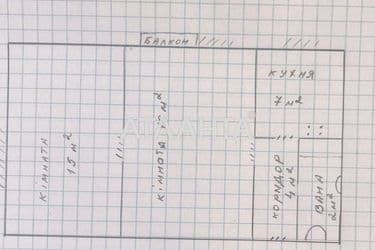 БАЛКОН
КУХНЯ
7 м²
КІМНАТА
15 м²
КІМНАТА
м²
КОРИДОР
4 м²
ВАНА
2 м²
АТЛАНТА